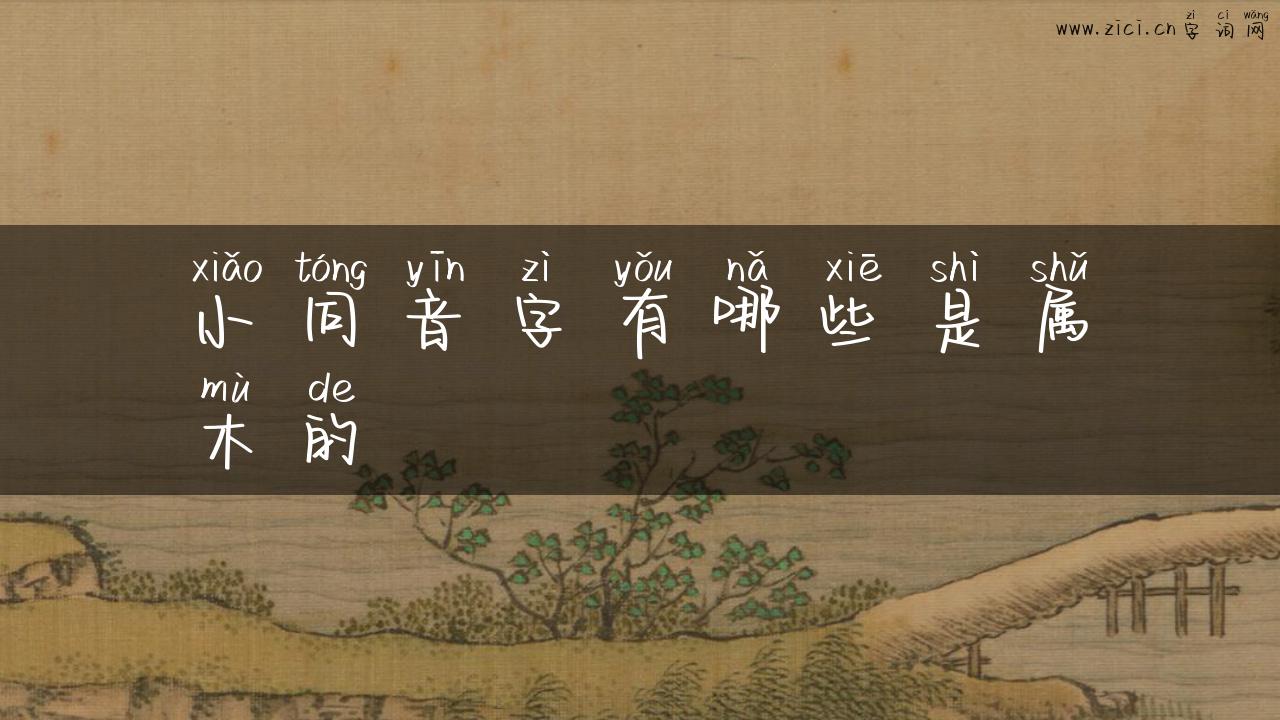 zì cí wǎng
www.zici.cn 字词网
xiǎo tóng yīn zì yǒu nǎ xiē shì shǔ
小同音字有哪些是属
mù de
木的